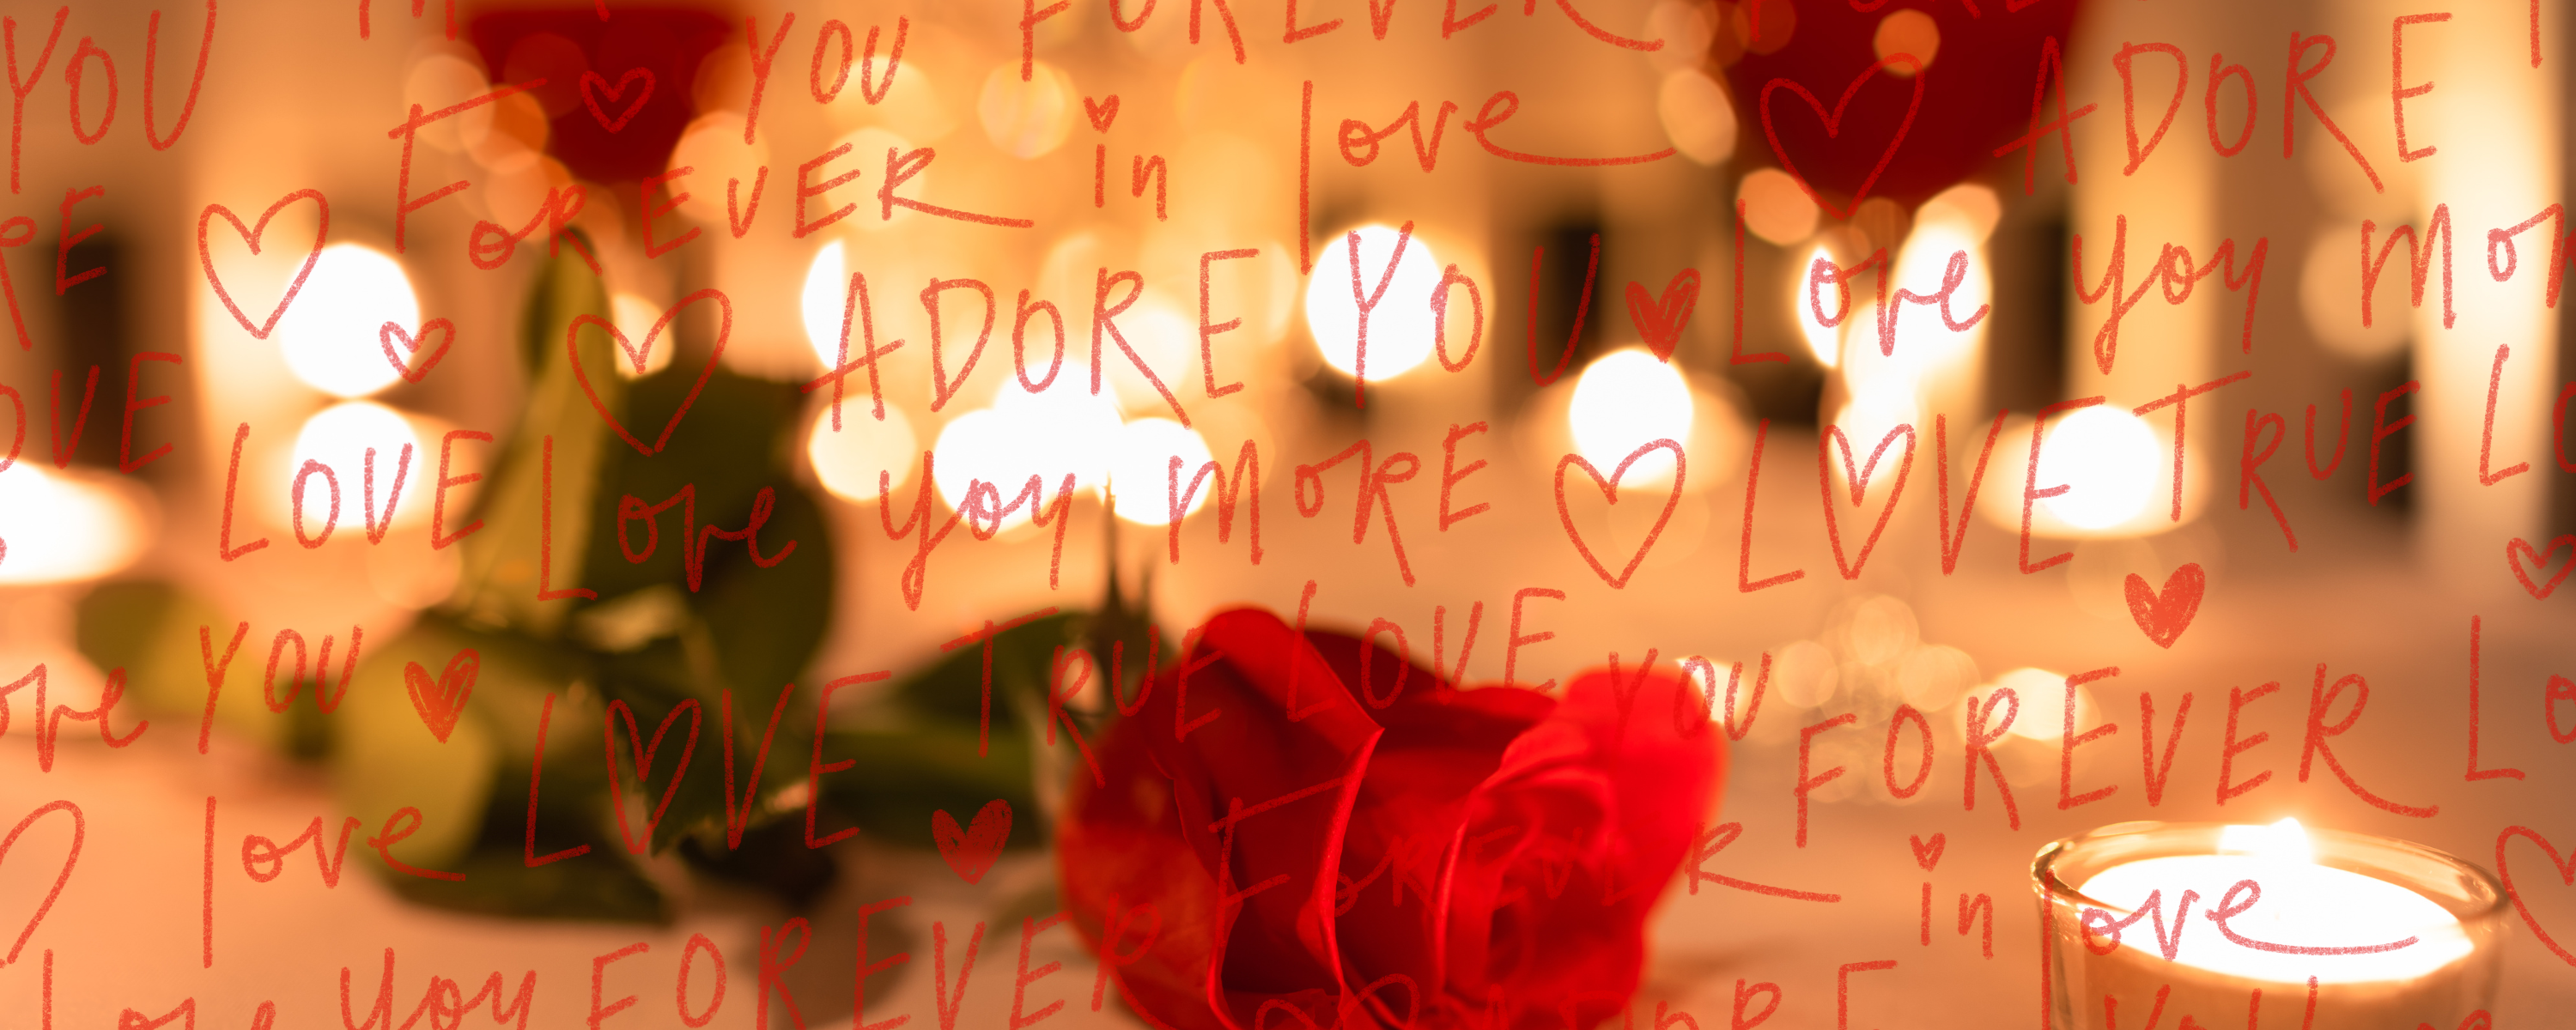 YOU YOU FOREVER
FOREVER in love ADORE
ADORE YOU Love you
LOVE Love you MORE LOVE TRUE
YOU LOVE TRUE LOVE YOU FOREVER
love FOREVER in love
Love you FOREVER